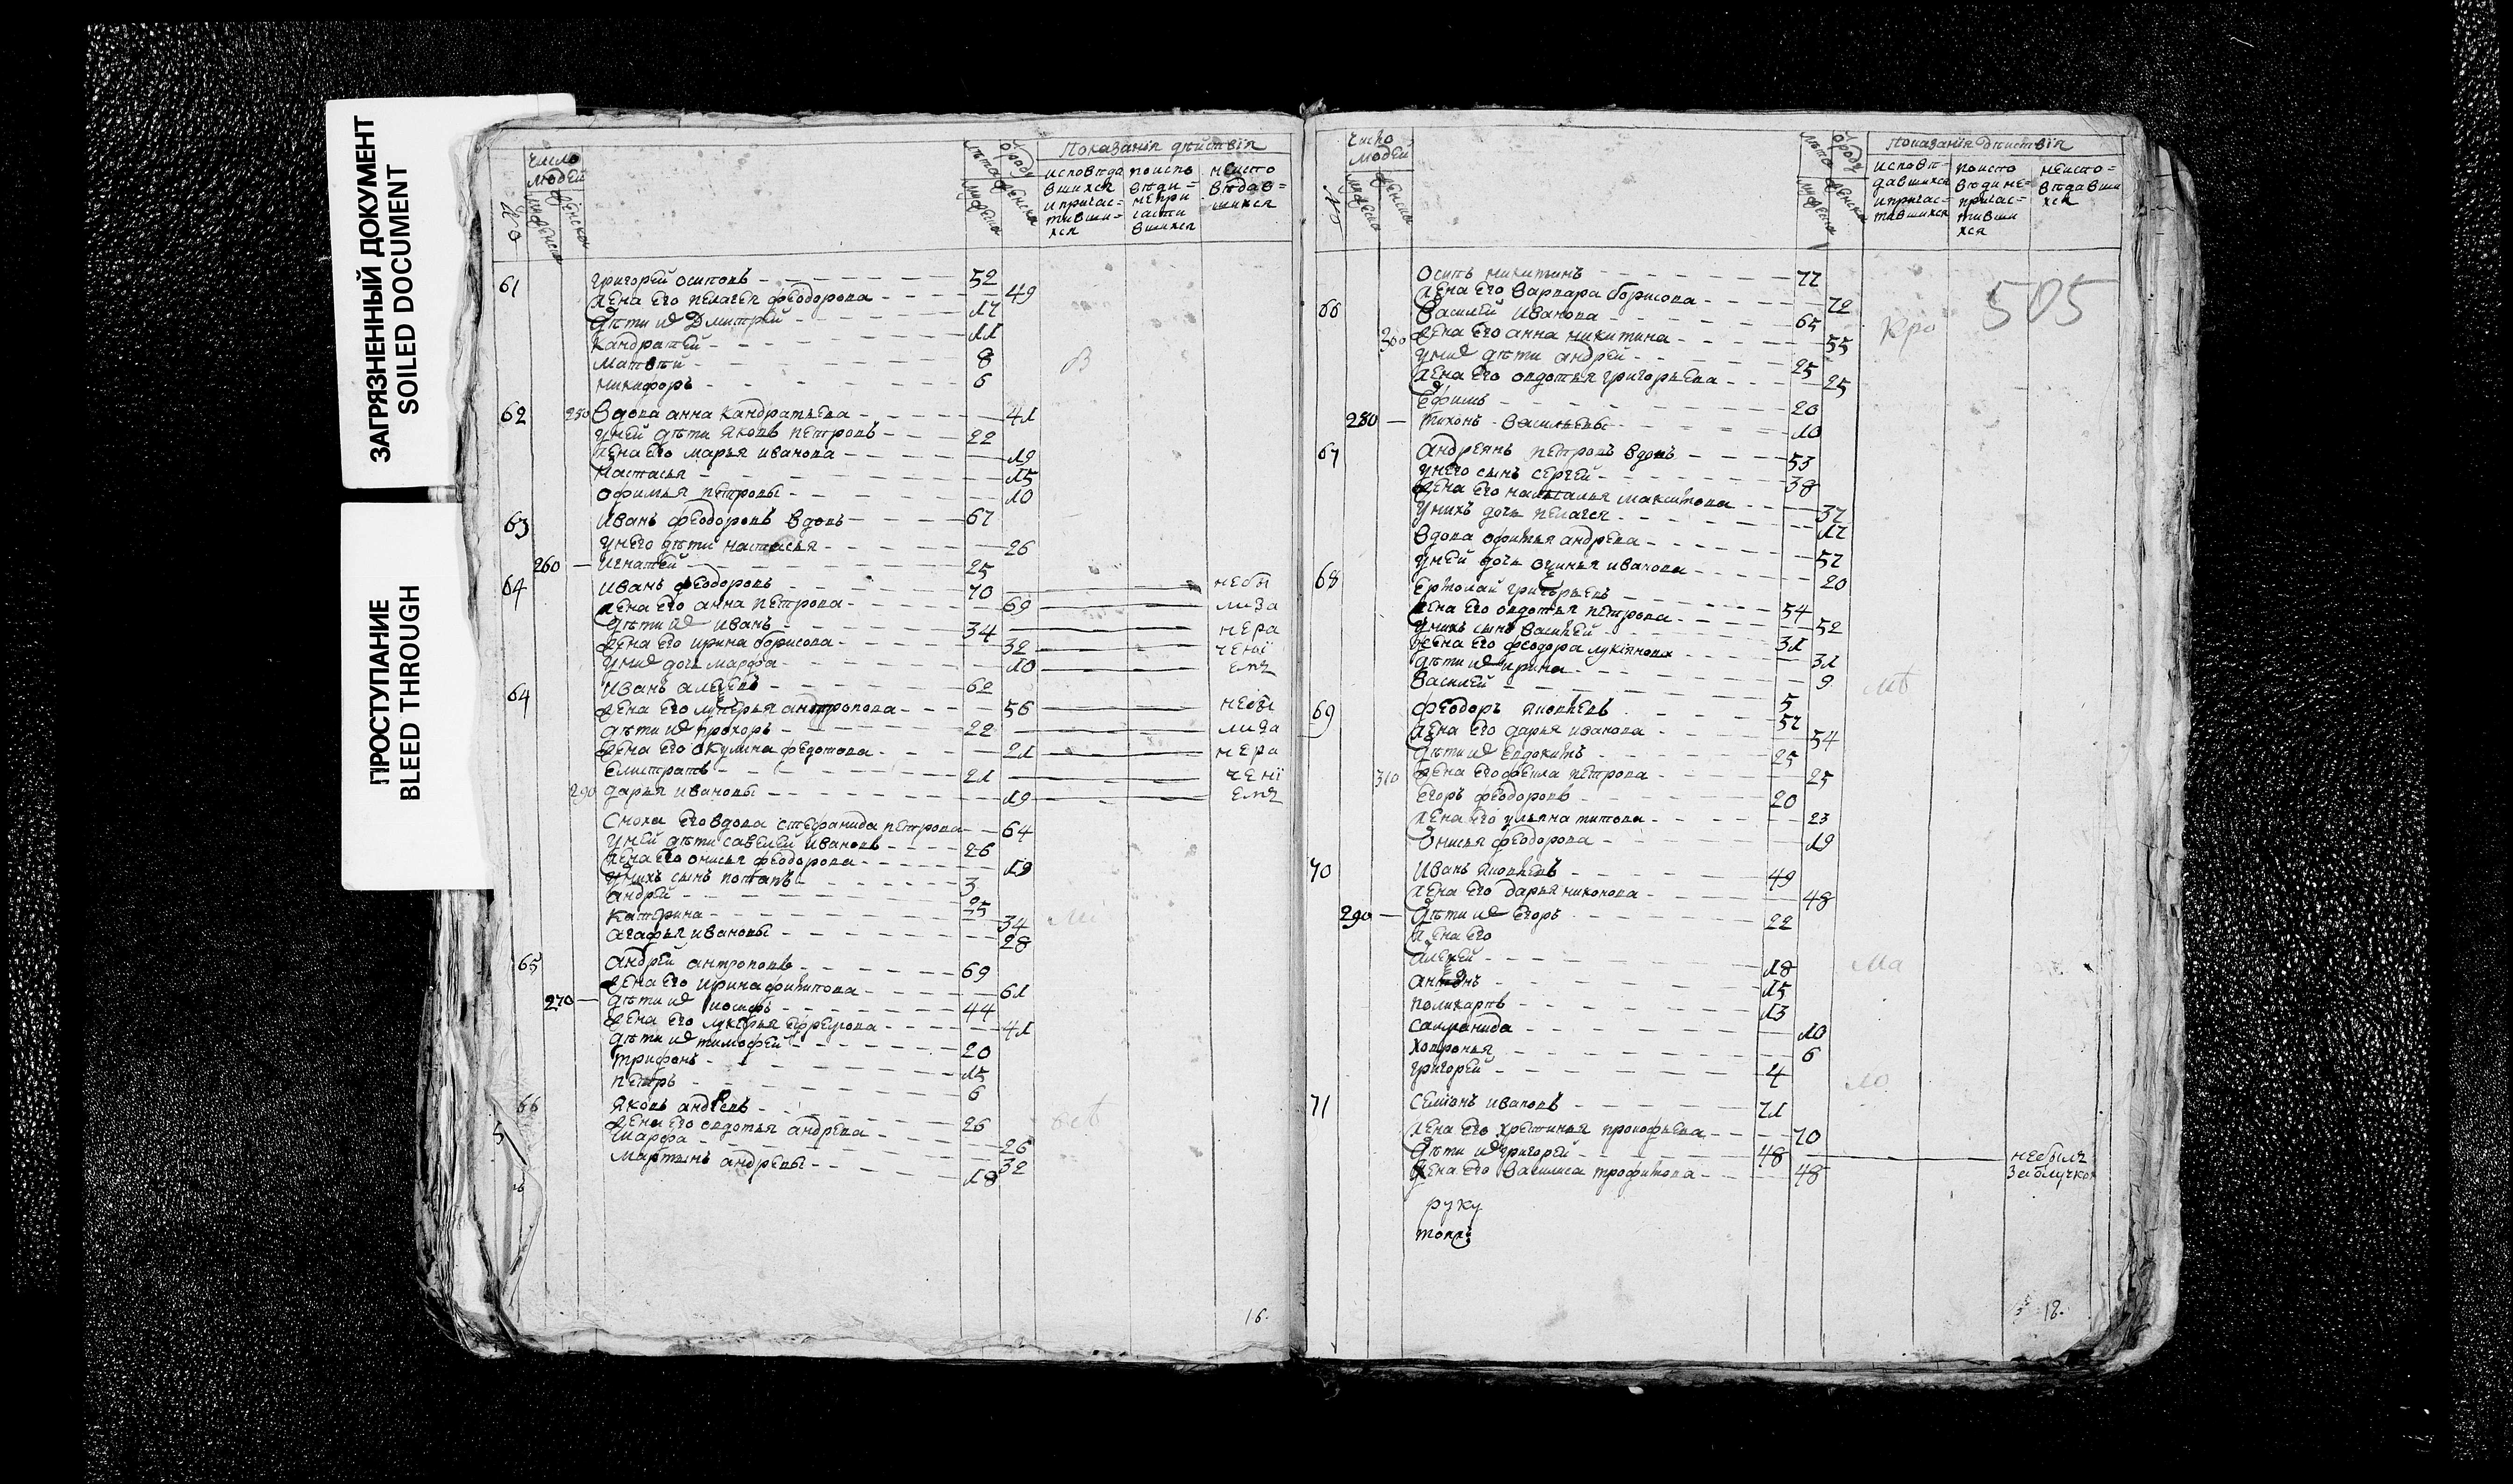 ЗАГРЯЗНЕННЫЙ ДОКУМЕНТ
SOILED DOCUMENT
ПРОСТУПАНИЕ
BLEED THROUGH
число людей
мужеска женска
лѣта ѿ роду
мужеска женска
Показанія дѣиствія
исповѣдавшихся и причастившихся
поисповѣди непричастившихся
неисповѣдавшихся
61 Григорей осиповъ 52
жена его пелагея феодорова 49
дѣти их Дмитрей 17
Кандратей 11
Матвѣи 8
никифоръ 6
62 250 Вдова анна кандратьева 41
у ней дѣти яковъ петровъ 22
жена его марья иванова 19
Настасья 15
офимья петровы 10
63 Иванъ феодоровъ вдовъ 67
у него дѣти настасья 26
260 Игнатей 25
64 Иванъ феодоровъ 70 небы
жена его анна петрова 69 ли за
дѣти их иванъ 34 нера
жена его ирина борисова 32 чені
у них дочь марфа 10 емъ
64 Иванъ алеѯеевъ 62
жена его лукерья антропова 56 небы
дѣти их прохоръ 22 ли за
жена его окулина федотова 21 нера
Елистратъ 21 чені
290 дарья ивановы 19 емъ
Сноха его вдова стефанида петрова 64
у ней дѣти савелей ивановъ 26
жена его онисья феодорова 19
у нихъ сынъ потапъ 3
андрей 25
катерина 34
агафья ивановы 28
65 андрей антроповъ 69
жена его ирина филипова 61
270 дѣти их иосифъ 44
жена его лукерья ефремова 41
дѣти их тимофей 20
трифонъ 15
петръ 6
66 яковъ андреевъ 26
жена его овдотья андреева 26
Марфа 32
Мартынъ андреевы 18
16.
число людей
мужеска женска
лѣта ѿ роду
мужеска женска
Показанія дѣиствія
исповѣдавшихся и причастившихся
поисповѣди непричастившихся
неисповѣдавшихся
505
Осипъ никитинъ 77
жена его варвара борисова 72
66 Василей Иванова 65
300 жена его анна никитина 55
у них дѣти андрей 25
жена его овдотья григорьева 25
Ефимъ 20
280 Тихонъ васильевы 10
67 андреянъ петровъ вдовъ 53
у него сынъ сергей 38
жена его наталья максимова 37
у нихъ дочь пелагея 17
вдова офимья андрева 57
у ней дочь иванова 20
68 Ермолай григорьевъ 54
жена его овдотья петрова 52
у нихъ сынъ василей 31
жена его феодора лукіянова 31
дѣти их ирина 9
василей 5
69 феодоръ яковлевъ 57
жена его дарья иванова 54
дѣти их евдокимъ 25
310 жена его фекла петрова 25
егоръ феодоровъ 20
жена его ульяна титова 23
Онисья феодорова 19
70 Иванъ яковлевъ 49
жена его дарья никонова 48
290 дѣти их егоръ 22
жена его
алеѯей 18
антонъ 15
поликарпъ 13
саломанида 10
ховронья 6
григорей 4
71 Семіонъ ивановъ 71
жена его хрестинья прокофьева 70
дѣти их григорей 48 небылъ
жена его василиса трофимова 48 за отлучкою
руку
18.